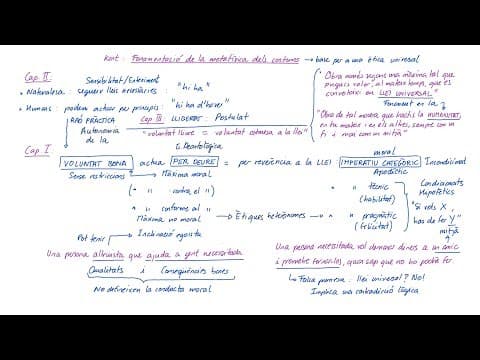 Kant: Fonamentació de la metafísica dels costums → base per a una ètica universal
Cap. II
Sensibilitat / Enteniment
• Naturalesa: segueix lleis necessàries: "hi ha"
• Humans: poden actuar per principis: "hi ha d'haver"
RAÓ PRÀCTICA Cap III LLIBERTAT: Postulat
Autonomia de la "voluntat lliure = voluntat sotmesa a la llei"
↳ Deontològica
"Obra només segons una màxima tal que
puguis voler, al mateix temps, que es
converteixi en LLEI UNIVERSAL"
Fonament en la
"Obra de tal manera que tractis la HUMANITAT,
en tu mateix i en els altres, sempre com a
fi i mai com a mitjà"
Cap. I
moral
VOLUNTAT BONA actua PER DEURE = per reverència a la LLEI IMPERATIU CATEGÒRIC Incondicional
Sense restriccions Màxima moral Apodíctic
" contra el " " tècnic
(habilitat)
" conforme al " → Ètiques heterònomes → " pragmàtic
Màxima no moral (felicitat)
Condicionats
Hipotètics
"Si vols X,
has de fer Y"
mitjà
Pot tenir → Inclinació egoista
Una persona altruista que ajuda a gent necessitada
Qualitats i Conseqüències bones
↳ No defineixen la conducta moral
Una persona necessitada vol demanar diners a un amic
i promet tornar-los, quan sap que no ho podrà fer.
↳ Falsa promesa: llei universal? No!
Implica una contradicció lògica